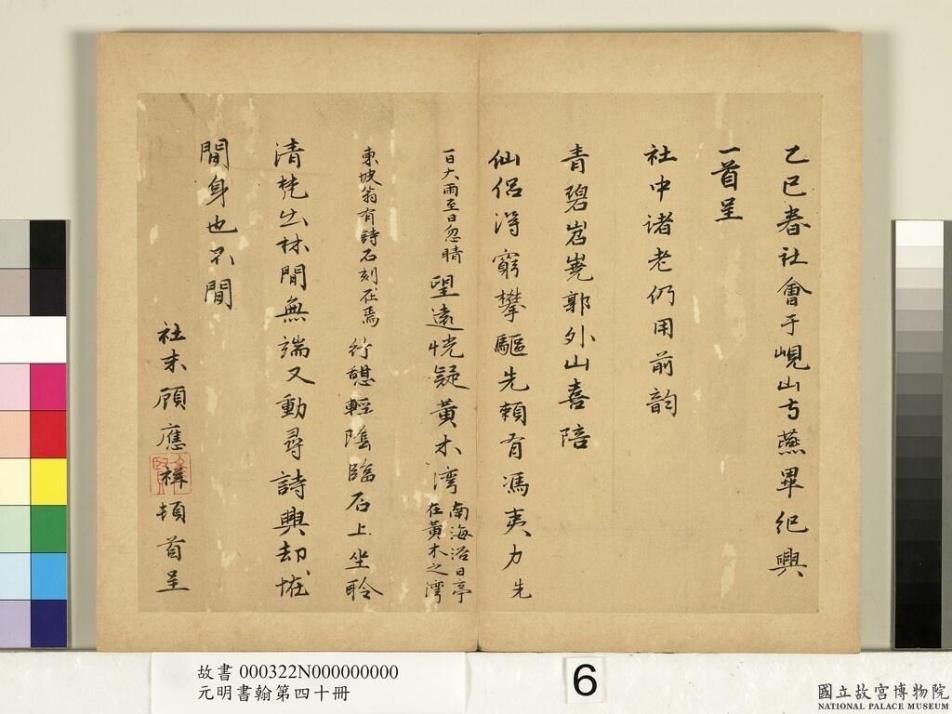 乙巳春社會于峴山寺燕畢紀興
一首呈
社中诸老仍用前韵
青碧岧嶤郭外山喜陪
仙侣得窮攀驅先賴有馮夷力先
一日大雨至日忽晴望遠恍疑黄木灣南海浴日亭
在黄木之灣
東坡翁有詩石刻在焉行憩輕陰臨石上坐聆
清梵出林間無端又動尋詩興却恠
閒身也不閒
社末顧應祥頓首呈
故書 000322N000000000
元明書翰第四十冊
6
國立故宮博物院
NATIONAL PALACE MUSEUM